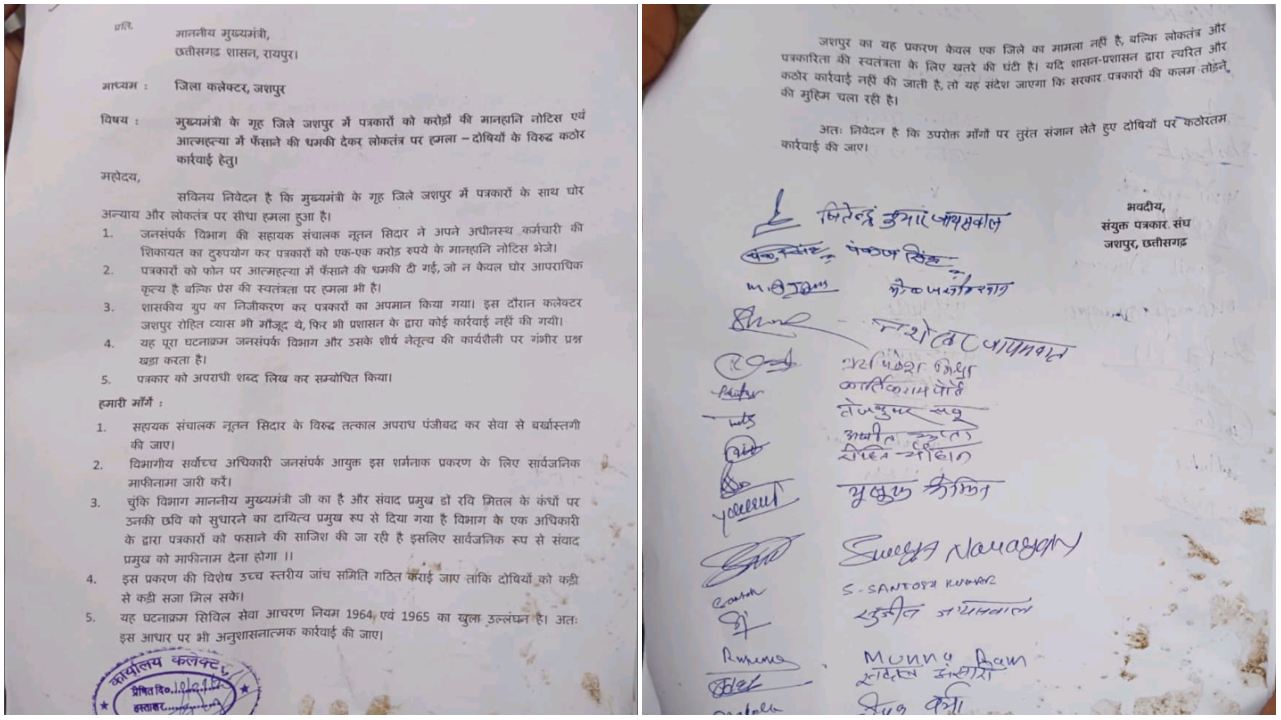 प्रति,
माननीय मुख्यमंत्री,
छत्तीसगढ़ शासन, रायपुर।
माध्यम : जिला कलेक्टर, जशपुर
विषय : मुख्यमंत्री के गृह जिले जशपुर में पत्रकारों को करोड़ों की मानहानि नोटिस एवं
आत्महत्या में फँसाने की धमकी देकर लोकतंत्र पर हमला – दोषियों के विरुद्ध कठोर
कार्रवाई हेतु।
महोदय,
सविनय निवेदन है कि मुख्यमंत्री के गृह जिले जशपुर में पत्रकारों के साथ घोर
अन्याय और लोकतंत्र पर सीधा हमला हुआ है।
1. जनसंपर्क विभाग की सहायक संचालक नूतन सिदार ने अपने अधीनस्थ कर्मचारी की
शिकायत का दुरुपयोग कर पत्रकारों को एक-एक करोड़ रुपये के मानहानि नोटिस भेजे।
2. पत्रकारों को फोन पर आत्महत्या में फँसाने की धमकी दी गई, जो न केवल घोर आपराधिक
कृत्य है बल्कि प्रेस की स्वतंत्रता पर हमला भी है।
3. शासकीय ग्रुप का निजीकरण कर पत्रकारों का अपमान किया गया। इस दौरान कलेक्टर
जशपुर रोहित व्यास भी मौजूद थे, फिर भी प्रशासन के द्वारा कोई कार्रवाई नहीं की गयी।
4. यह पूरा घटनाक्रम जनसंपर्क विभाग और उसके शीर्ष नेतृत्व की कार्यशैली पर गंभीर प्रश्न
खड़ा करता है।
5. पत्रकार को अपराधी शब्द लिख कर सम्बोधित किया।
हमारी माँगें :
1. सहायक संचालक नूतन सिदार के विरुद्ध तत्काल अपराध पंजीवद कर सेवा से बर्खास्तगी
की जाए।
2. विभागीय सर्वोच्च अधिकारी जनसंपर्क आयुक्त इस शर्मनाक प्रकरण के लिए सार्वजनिक
माफीनामा जारी करें।
3. चुंकि विभाग माननीय मुख्यमंत्री जी का है और संवाद प्रमुख डॉ रवि मितल के कंधों पर
उनकी छवि को सुधारने का दायित्व प्रमुख रूप से दिया गया है विभाग के एक अधिकारी
के द्वारा पत्रकारों को फसाने की साजिश की जा रही है इसलिए सार्वजनिक रूप से संवाद
प्रमुख को माफीनाम देना होगा ।।
4. इस प्रकरण की विशेष उच्च स्तरीय जांच समिति गठित कराई जाए ताकि दोषियों को कड़ी
से कड़ी सजा मिल सके।
5. यह घटनाक्रम सिविल सेवा आचरण नियम 1964 एवं 1965 का खुला उल्लंघन है। अतः
इस आधार पर भी अनुशासनात्मक कार्रवाई की जाए।
कार्यालय कलेक्टर,
प्रेषित दि०
हस्ताक्षर
जशपुर का यह प्रकरण केवल एक जिले का मामला नहीं है, बल्कि लोकतंत्र और
पत्रकारिता की स्वतंत्रता के लिए खतरे की घंटी है। यदि शासन-प्रशासन द्वारा त्वरित और
कठोर कार्रवाई नहीं की जाती है, तो यह संदेश जाएगा कि सरकार पत्रकारों की कलम तोड़ने
की मुहिम चला रही है।
अतः निवेदन है कि उपरोक्त माँगों पर तुरंत संज्ञान लेते हुए दोषियों पर कठोरतम
कार्रवाई की जाए।
भवदीय,
संयुक्त पत्रकार संघ
जशपुर, छत्तीसगढ़
जितेन्द्र कुमार जायसवाल
पंकज सिंह
कार्तिकराम पोर्ते
तेजकुमार साहू
Surya Narayan
S. SANTOSH KUMAR
सुजीत जायसवाल
Munna Ram